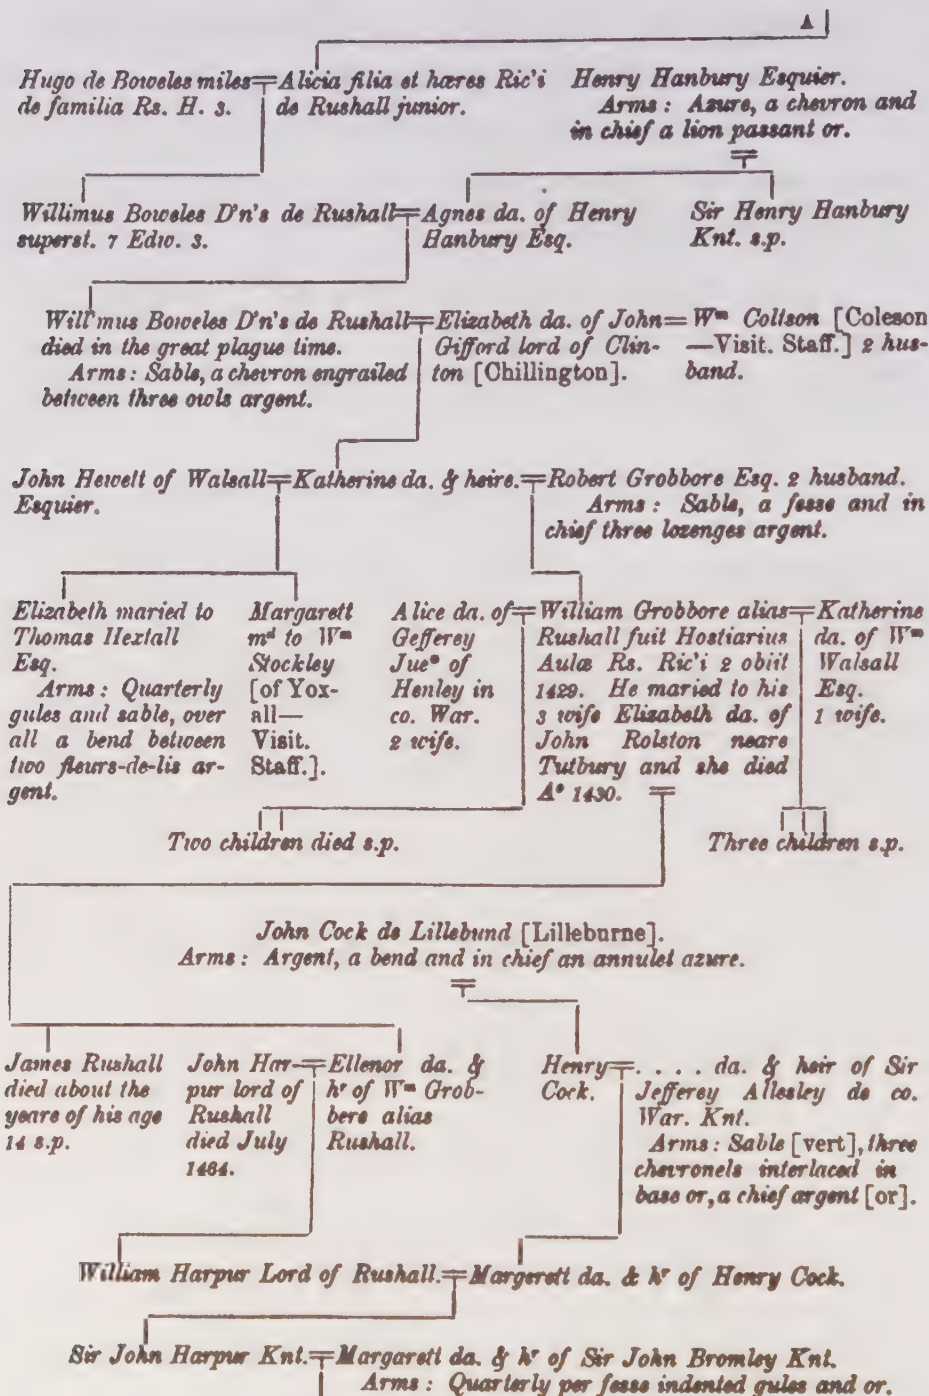 A
Hugo de Boweles miles = Alicia filia et hæres Ric'i
de familia Rs. H. 3. de Rushall junior.
Henry Hanbury Esquier.
Arms: Azure, a chevron and
in chief a lion passant or.
Willimus Boweles D'n's de Rushall = Agnes da. of Henry
superst. 7 Edw. 3. Hanbury Esq.
Sir Henry Hanbury
Knt. s.p.
Will'mus Boweles D'n's de Rushall = Elizabeth da. of John = Wm Coltson [Coleson
died in the great plague time. Gifford lord of Clin- —Visit. Staff.] 2 hus-
Arms: Sable, a chevron engrailed ton [Chillington]. band.
between three owls argent.
John Hewett of Walsall = Katherine da. & heire. = Robert Grobbore Esq. 2 husband.
Esquier. Arms: Sable, a fesse and in
chief three lozenges argent.
Elizabeth maried to
Thomas Hextall
Esq.
Arms: Quarterly
gules and sable, over
all a bend between
two fleurs-de-lis ar-
gent.
Margarett
md to Wm
Stockley
[of Yox-
all—
Visit.
Staff.].
Alice da. of
Gefferey
Jue* of
Henley in
co. War.
2 wife.
William Grobbore alias
Rushall fuit Hostiarius
Aulæ Rs. Ric'i 2 obiit
1429. He maried to his
3 wife Elizabeth da. of
John Rolston neare
Tutbury and she died
A° 1430. =
Katherine
da. of Wm
Walsall
Esq.
1 wife.
Two children died s.p.
Three children s.p.
John Cock de Lillebund [Lilleburne].
Arms: Argent, a bend and in chief an annulet azure.
=
James Rushall
died about the
yeare of his age
14 s.p.
John Har-
pur lord of
Rushall
died July
1464.
Ellenor da. &
hr of Wm Grob-
bere alias
Rushall.
Henry
Cock.
. . . . da. & heir of Sir
Jefferey Allesley de co.
War. Knt.
Arms: Sable [vert], three
chevronels interlaced in
base or, a chief argent [or].
William Harpur Lord of Rushall. = Margerett da. & hr of Henry Cock.
Sir John Harpur Knt. = Margarett da. & hr of Sir John Bromley Knt.
Arms: Quarterly per fesse indented gules and or.